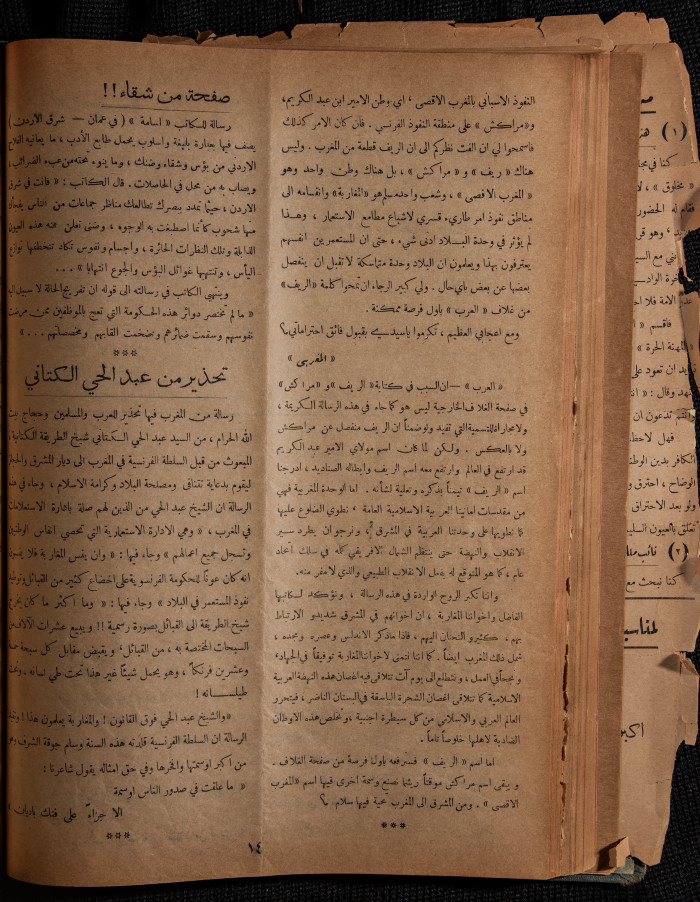 النفوذ الاسباني بالمغرب الاقصى، اي وطن الامير ابن عبد الكريم،
و«مراكش» على منطقة النفوذ الفرنسي. فان كان الامر كذلك
فاسمحوا لي ان الفت نظركم الى ان الريف قطعة من المغرب. وليس
هناك «ريف» و «مراكش»، بل هناك وطن واحد وهو
«المغرب الاقصى»، وشعب واحد مسلم هو «المغاربة» وانقسامه الى
مناطق نفوذ امر طارىء قسري لاشباع مطامع الاستعمار، وهذا
لم يؤثر في وحدة البلاد ادنى شيء، حتى ان المستعمرين انفسهم
يعترفون بهذا ويعلمون ان البلاد وحدة متماسكة لا تقبل ان ينفصل
بعضها عن بعض باي حال. ولي كبير الرجاء ان تمحوا كلمة «الريف»
من غلاف «العرب» باول فرصة ممكنة.
ومع اعجابي العظيم، تكرموا ياسيدي بقبول فائق احتراماتي؟
«المغربي»
«العرب» — ان السبب في كتابة «الريف» و«مراكش»
في صفحة الغلاف الخارجية ليس هو كما جاء في هذه الرسالة الكريمة،
ولا مجاراة للتسمية التي تفيد ولو ضمناً ان الريف منفصل عن مراكش
ولا بالعكس. ولكن لما كان اسم مولاي الامير عبد الكريم
قد ارتفع في العالم وارتفع معه اسم الريف وابطاله الصناديد، ادرجنا
اسم «الريف» تيمناً بذكره وتعلية لشأنه. اما الوحدة المغربية فهي
من مقدسات امانينا العربية الاسلامية العامة، نطوي الضلوع عليها
كما نطويها على وحدتنا العربية في المشرق، ونرجو ان يطرد سير
الانقلاب والنهضة حتى ينتظم الشمال الافريقي كله في سلك اتحاد
عام، كما هو المتوقع له بفعل الانقلاب الطبيعي والذي لا مفر منه.
واننا نكبر الروح الواردة في هذه الرسالة، ونؤكد لكاتبها
الفاضل واخواننا المغاربة، ان اخوانهم في المشرق شديدو الارتباط
بهم، كثيرو التحنان اليهم، فاذا ماذكر الاندلس وعصره ومجده،
شمل ذلك المغرب ايضاً. كما اننا نتمنى لاخواننا المغاربة توفيقاً في الجهاد،
ونجحاً في العمل، ونتطلع الى يوم آت تتلاقى فيه اغصان هذه النهضة العربية
الاسلامية كما تتلاقى اغصان الشجرة الباسقة في البستان الناضر، فيتحرر
العالم العربي والاسلامي من كل سيطرة اجنبية، وتخلص هذه الاوطان
الضادية لاهلها خلوصاً تاماً.
اما اسم «الريف» فسنرفعه باول فرصة من صفحة الغلاف.
ويبقى اسم مراكش موقتاً ريثما نصنع وسمة اخرى فيها اسم «المغرب
الاقصى». ومن المشرق الى المغرب تحية فيها سلام.؟
***
صفحة من شقاء!!
رسالة للكاتب «اسامة» (في عمان — شرق الاردن)
يصف فيها بعبارة بليغة واسلوب يحمل طابع الأدب، ما يعانيه الفلاح
الاردني من بؤس وشقاء وضنك، وما ينوء تحته من عبء الضرائب،
ويصاب به من محل في الحاصلات. قال الكاتب: «فانت في شرق
الاردن، حيثما تمدد ببصرك تطالعك مناظر جماعات من الناس يفجأك
منها شحوب كأنما اصطبغت به الوجوه، وضنى تعلن عنه هذه العيون
الذابلة وتلك النظرات الحائرة، واجسام ونفوس تكاد تتخطفها نوازع
اليأس، وتنتهبها غوائل البؤس والجوع انتهابا»...
وينتهي الكاتب في رسالته الى قوله ان تفريج الحالة لا سبيل اليه
«ما لم تختصر دوائر هذه الحكومة التي تعج بالموظفين ممن مرضت
نفوسهم وسقمت ضمائرهم وتضخمت القابهم ومخصصاتهم...»
***
تحذير من عبد الحي الكتاني
رسالة من المغرب فيها تحذير للعرب والمسلمين وحجاج بيت
الله الحرام، من السيد عبد الحي الكتاني شيخ الطريقة الكتانية،
المبعوث من قبل السلطة الفرنسية في المغرب الى ديار المشرق والحجاز
ليقوم بدعاية تتنافى ومصلحة البلاد وكرامة الاسلام. وجاء في هذه
الرسالة ان الشيخ عبد الحي من الذين لهم صلة بادارة الاستعلامات
في المغرب، «وهي الادارة الاستعمارية التي تحصي انفاس الوطنيين
وتسجل جميع اعمالهم» وجاء فيها: «وان ينس المغاربة فلا ينسون
انه كان عوناً للحكومة الفرنسوية على اخضاع كثير من القبائل وتوطيد
نفوذ المستعمر في البلاد» وجاء فيها: «وما اكثر ما كان يخرج
شيخ الطريقة الى القبائل بصورة رسمية!! ويبيع عشرات الآلاف من
السبحات المختصة به، من القبائل، ويقبض مقابل كل سبحة خمسة
وعشرين فرنكاً، وهو يحمل شيئاً غير هذا تحت طي لسانه، وتحت
طيلسانه!
«والشيخ عبد الحي فوق القانون! والمغاربة يعلمون هذا! وتقول
الرسالة ان السلطة الفرنسية قلدته هذه السنة وسام جوقة الشرف وهو
من اكبر اوسمتها وافخرها وفي حق امثاله يقول شاعرنا:
«ما علقت في صدور الناس اوسمة
الا جزاءً على فتك باديان»
***
١٤
(١)
كنا في مجلة
«مخلوق»
(٢) نائب
كنا نبحث مع